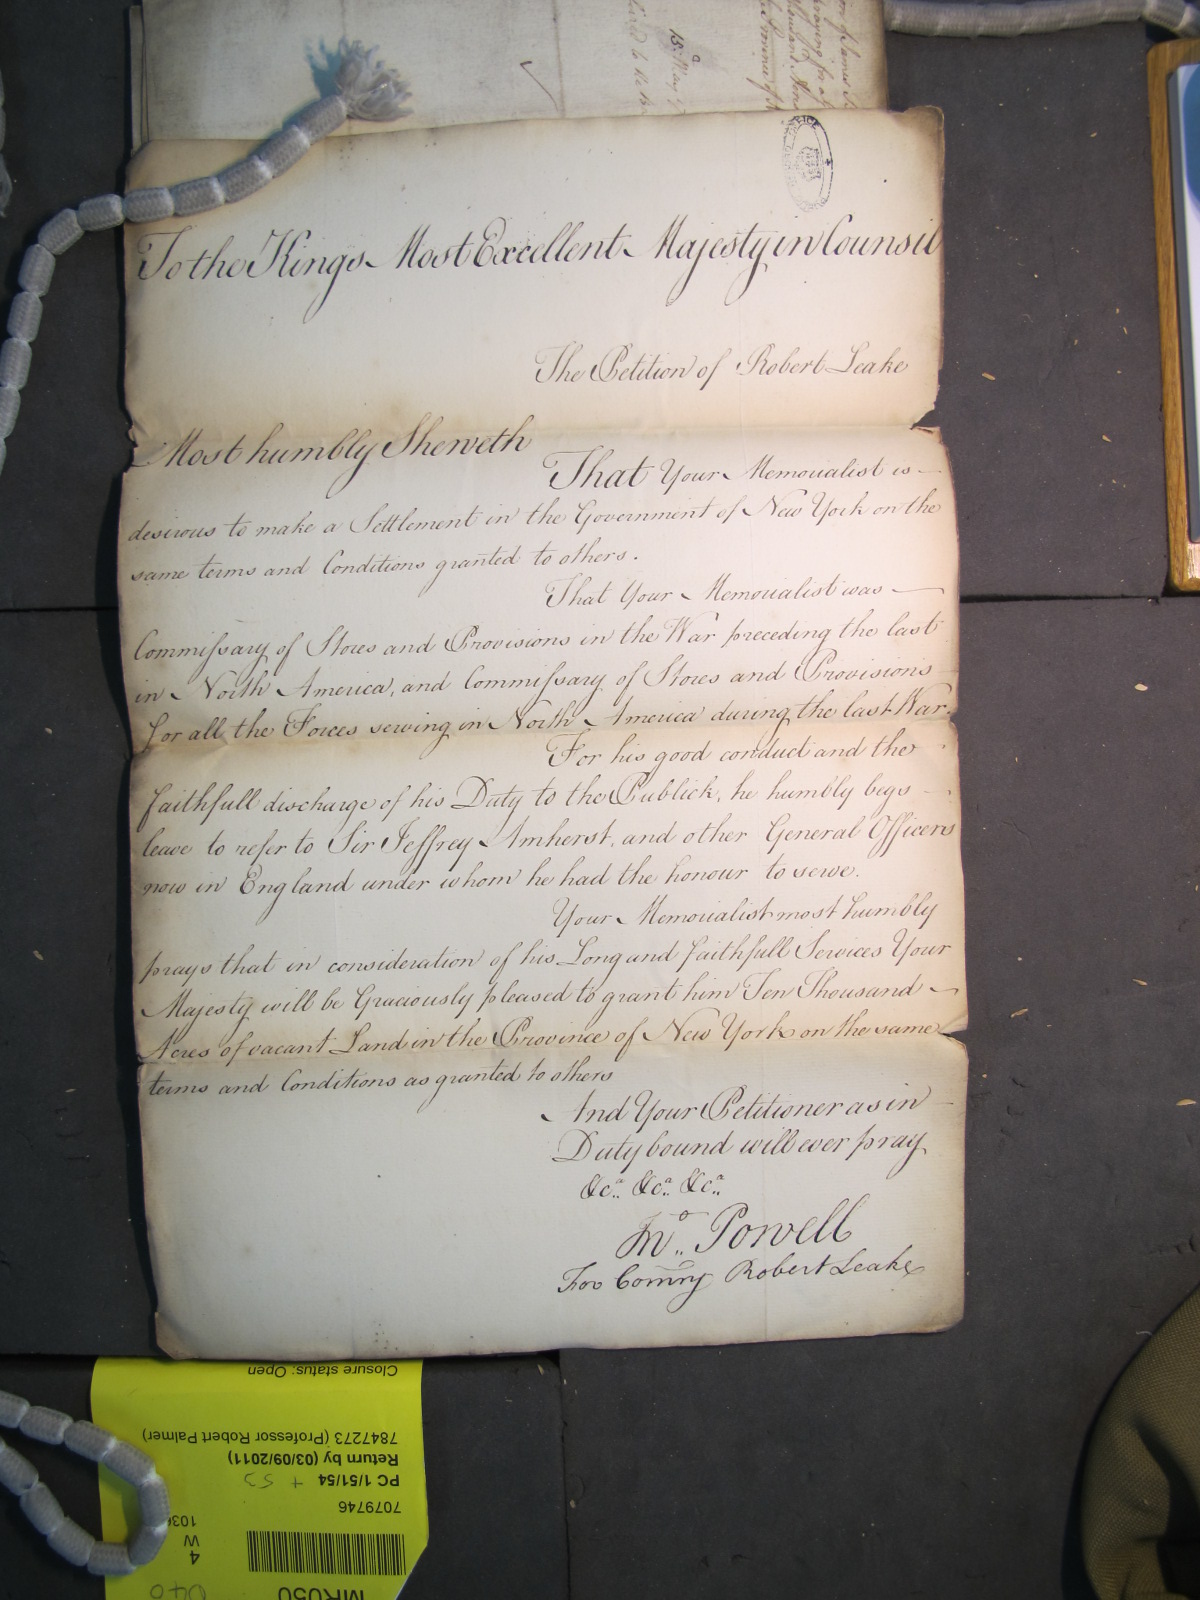 15 May
To the Kings Most Excellent Majesty in Council
The Petition of Robert Leake
Most humbly Sheweth
That Your Memorialist is
desirous to make a Settlement in the Government of New York on the
same terms and Conditions granted to others.
That Your Memorialist was
Commissary of Stores and Provisions in the War preceding the last
in North America, and Commissary of Stores and Provisions
for all the Forces serving in North America during the last War.
For his good conduct and the
faithfull discharge of his Duty to the Publick, he humbly begs
leave to refer to Sir Jeffrey Amherst, and other General Officers
now in England under whom he had the honour to serve.
Your Memorialist most humbly
prays that in consideration of his Long and faithfull Services Your
Majesty will be Graciously pleased to grant him Ten Thousand
Acres of vacant Land in the Province of New York on the same
terms and Conditions as granted to others
And Your Petitioner as in
Duty bound will ever pray
&c.a &c.a &c.a
Jno. Powell
For Comry Robert Leake
MR050
040
4
W
103
7079746
PC 1/51/54 + 53
Return by (03/09/2011)
7847273 (Professor Robert Palmer)
Closure status: Open